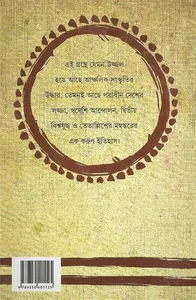 এই গ্রন্থে যেমন উজ্জ্বল
হয়ে আছে আঞ্চলিক সংস্কৃতির
উদ্ধার, তেমনই আছে পরাধীন দেশের
লজ্জা, স্বদেশি আন্দোলন, দ্বিতীয়
বিশ্বযুদ্ধ ও তেতাল্লিশের মন্বন্তরের
এক করুণ ইতিহাস।